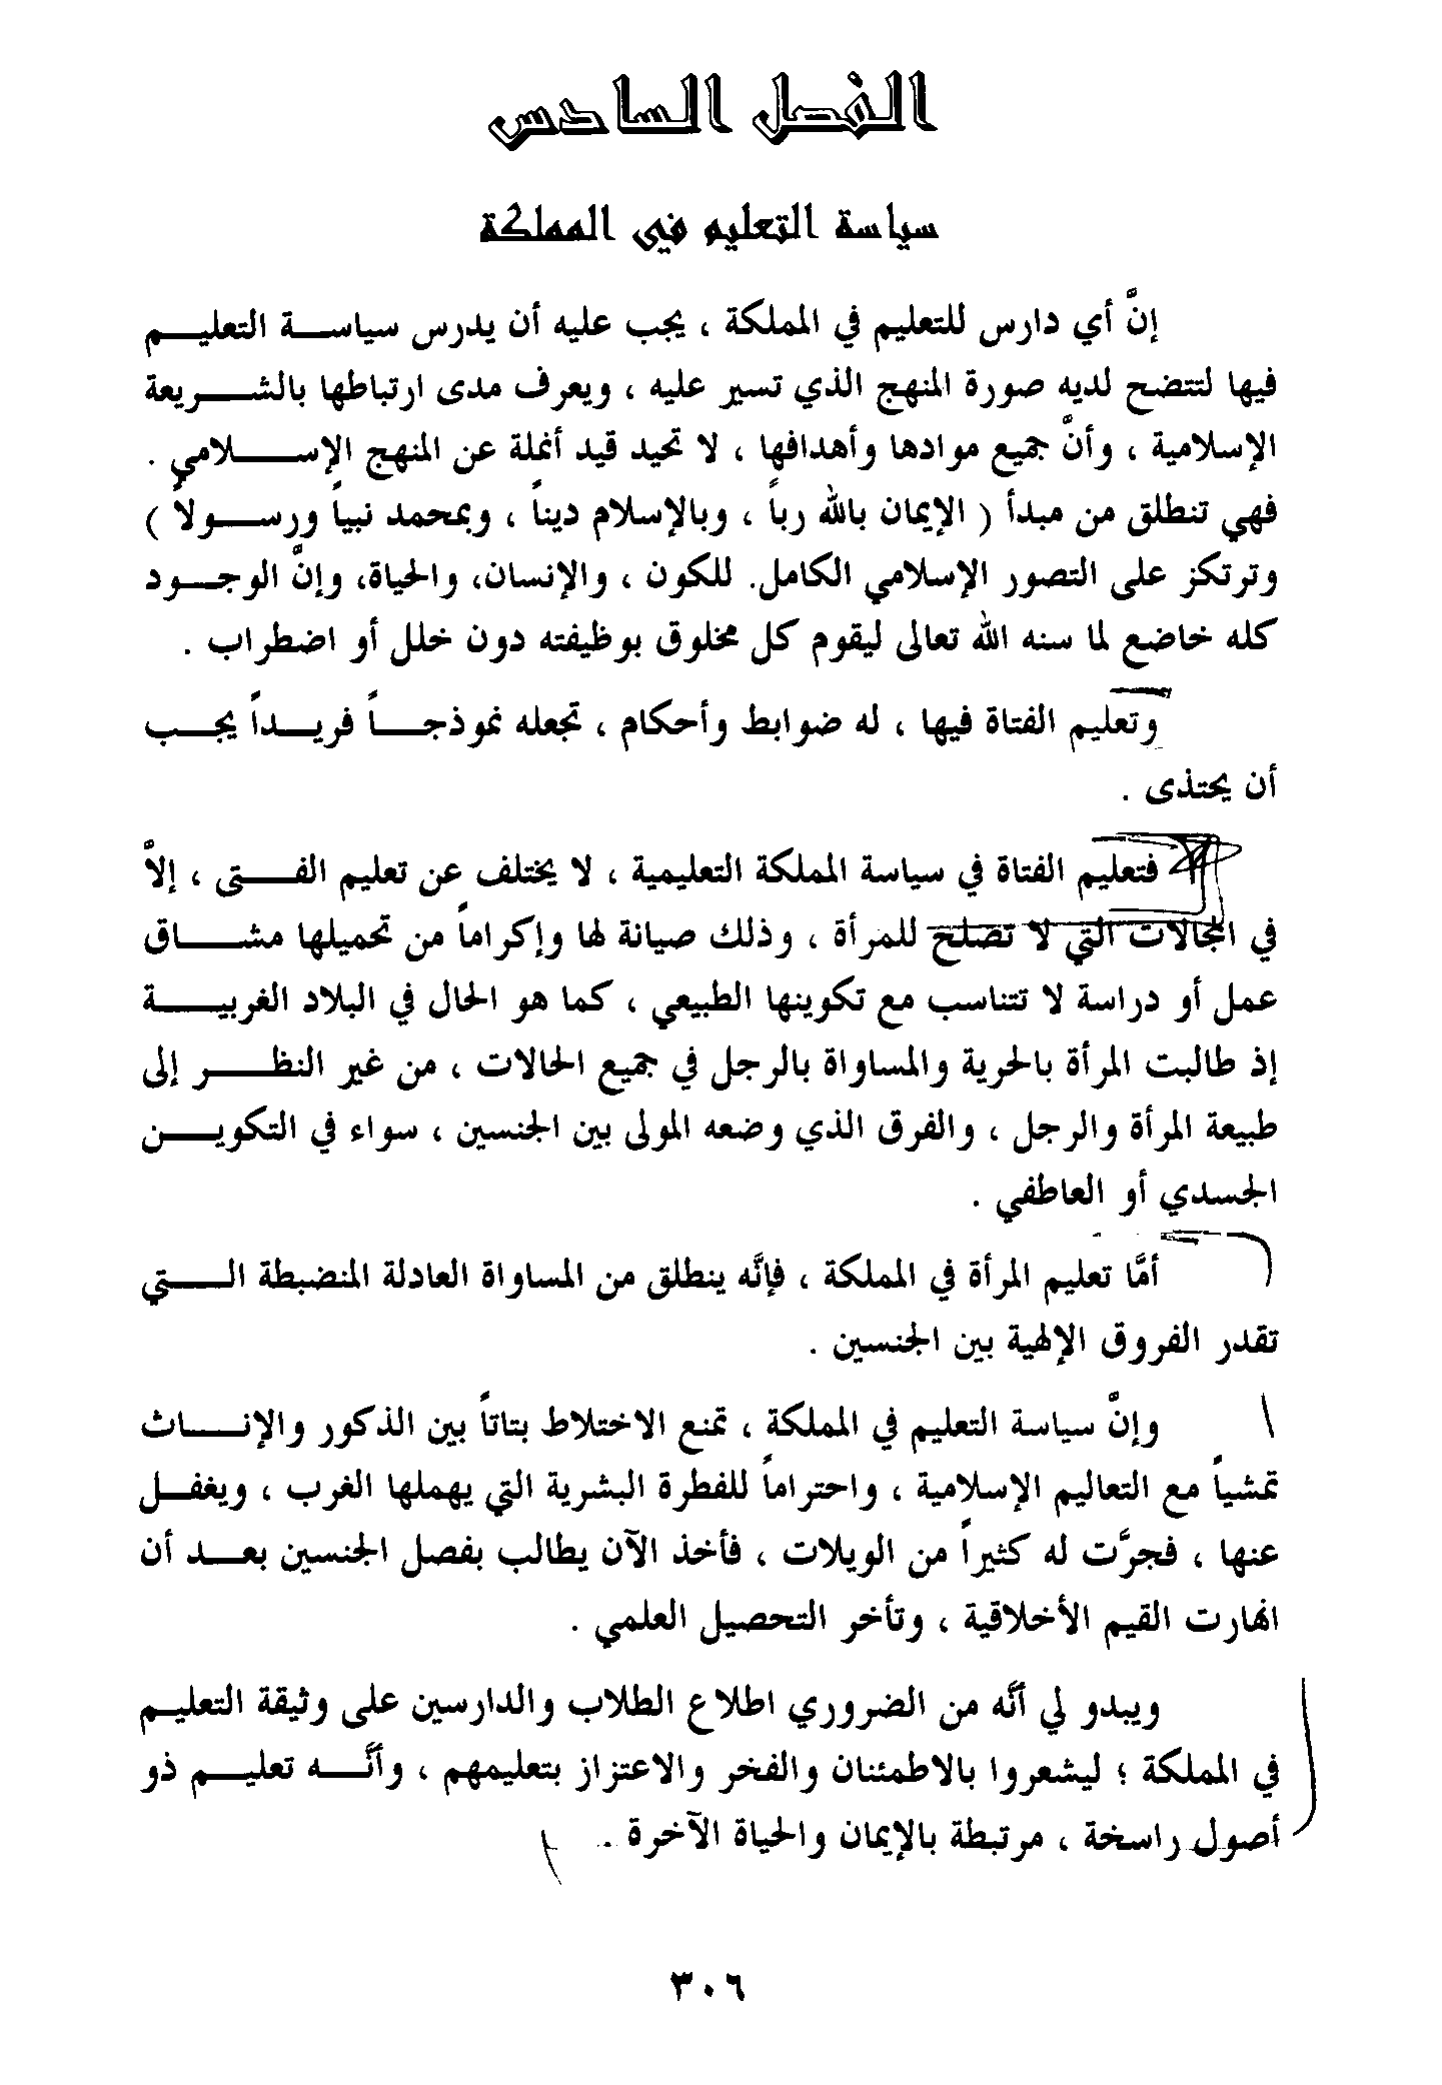 الفصل السادس
سياسة التعليم في المملكة
إنَّ أي دارس للتعليم في المملكة ، يجب عليه أن يدرس سياسة التعليم
فيها لتتضح لديه صورة المنهج الذي تسير عليه ، ويعرف مدى ارتباطها بالشريعة
الإسلامية ، وأنَّ جميع موادها وأهدافها ، لا تحيد قيد أنملة عن المنهج الإسلامي .
فهي تنطلق من مبدأ ( الإيمان بالله رباً ، وبالإسلام ديناً ، وبمحمد نبياً ورسولاً )
وترتكز على التصور الإسلامي الكامل. للكون ، والإنسان، والحياة، وإنَّ الوجود
كله خاضع لما سنه الله تعالى ليقوم كل مخلوق بوظيفته دون خلل أو اضطراب .
وتعليم الفتاة فيها ، له ضوابط وأحكام ، تجعله نموذجاً فريداً يجب
أن يحتذى .
فتعليم الفتاة في سياسة المملكة التعليمية ، لا يختلف عن تعليم الفتى ، إلاَّ
في المجالات التي لا تصلح للمرأة ، وذلك صيانة لها وإكراماً من تحميلها مشاق
عمل أو دراسة لا تتناسب مع تكوينها الطبيعي ، كما هو الحال في البلاد الغربية
إذ طالبت المرأة بالحرية والمساواة بالرجل في جميع الحالات ، من غير النظر إلى
طبيعة المرأة والرجل ، والفرق الذي وضعه المولى بين الجنسين ، سواء في التكوين
الجسدي أو العاطفي .
أمَّا تعليم المرأة في المملكة ، فإنَّه ينطلق من المساواة العادلة المنضبطة التي
تقدر الفروق الإلهية بين الجنسين .
وإنَّ سياسة التعليم في المملكة ، تمنع الاختلاط بتاتاً بين الذكور والإناث
تمشياً مع التعاليم الإسلامية ، واحتراماً للفطرة البشرية التي يهملها الغرب ، ويغفل
عنها ، فجرَّت له كثيراً من الويلات ، فأخذ الآن يطالب بفصل الجنسين بعد أن
انهارت القيم الأخلاقية ، وتأخر التحصيل العلمي .
ويبدو لي أنَّه من الضروري اطلاع الطلاب والدارسين على وثيقة التعليم
في المملكة ؛ ليشعروا بالاطمئنان والفخر والاعتزاز بتعليمهم ، وأنَّه تعليم ذو
أصول راسخة ، مرتبطة بالإيمان والحياة الآخرة .
٣٠٦